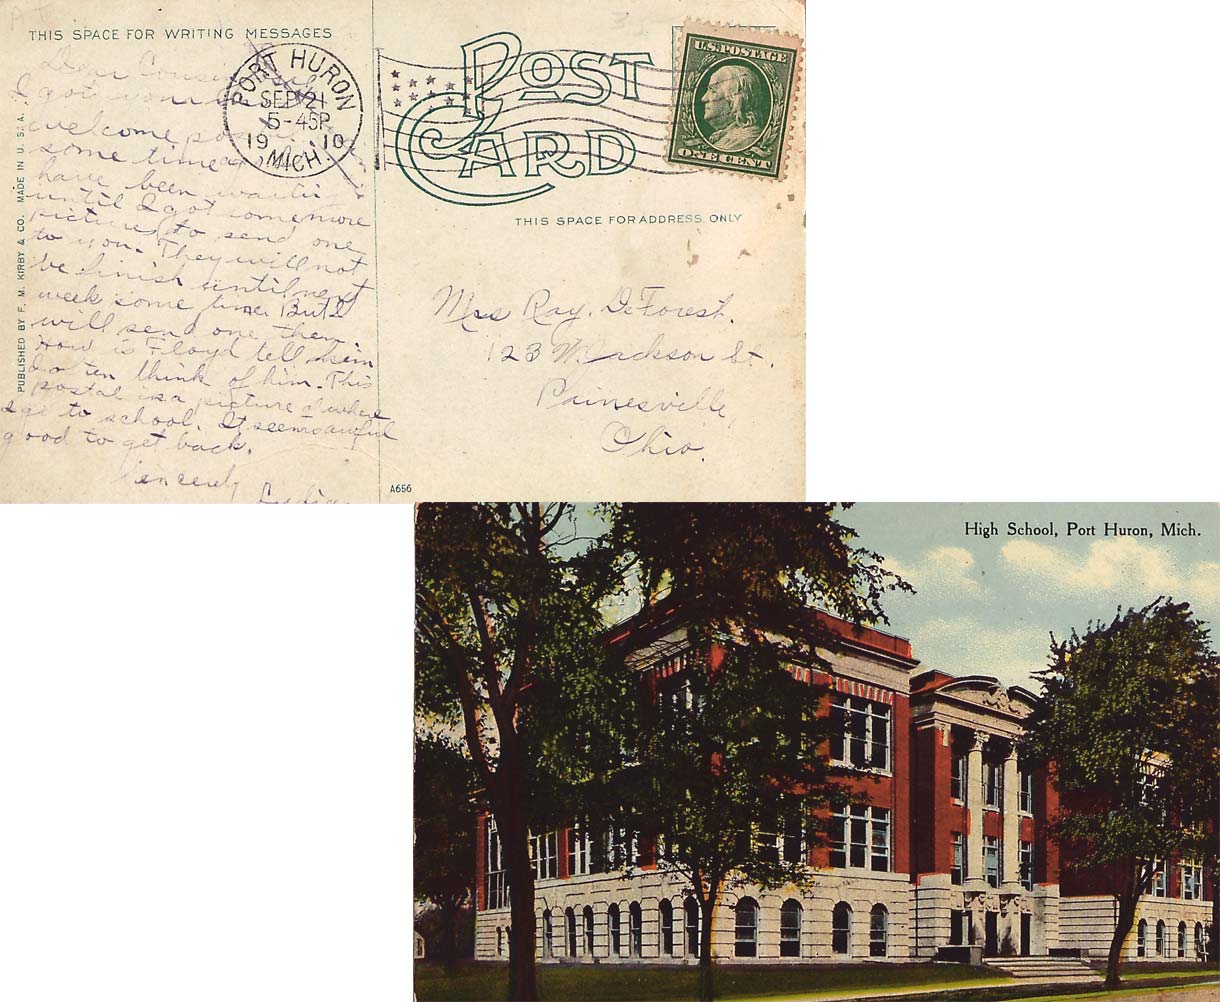 THIS SPACE FOR WRITING MESSAGES
Dear Cousin
I got your
welcome postal
some time ago
have been waiting
until I got some more
pictures to send one
to you. They will not
be finish until next
week some time. But I
will send one then.
How is Floyd tell him
I often think of him. This
postal is a picture of where
I go to school. It seems awful
good to get back.
Sincerely
Lydia
PUBLISHED BY F. M. KIRBY & CO. MADE IN U. S. A.
PORT HURON
SEP 21
5-45P
1910
MICH.
POST CARD
U.S. POSTAGE
ONE CENT
THIS SPACE FOR ADDRESS ONLY
Mrs Ray. DeForest.
123 N Jackson St.
Painesville,
Ohio.
A656
High School, Port Huron, Mich.